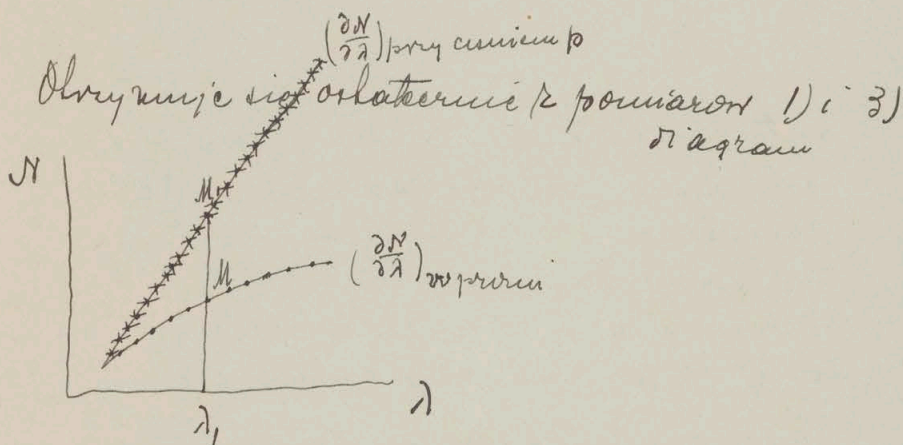 (∂N/∂λ) przy ciśnieniu p
Otrzymuje się ostatecznie z pomiarów 1) i 3)
diagram
N
M₁
M
(∂N/∂λ) w próżni
λ₁
λ